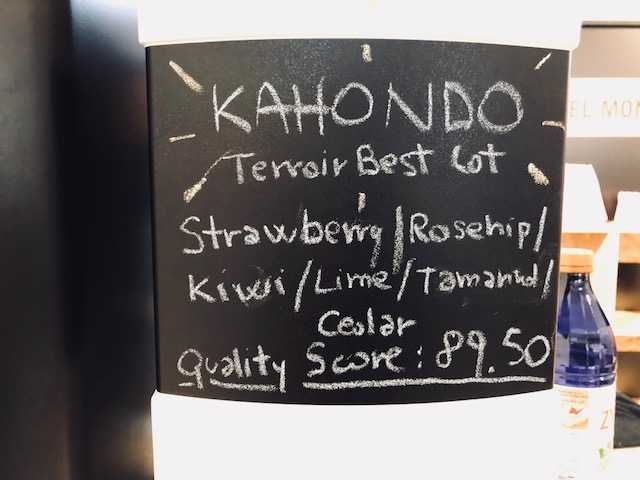 KAHONDO
Terroir Best Lot
Strawberry/Rosehip/
Kiwi/Lime/Tamarind/
Cedar
Quality Score: 89.50
EL MON
Z